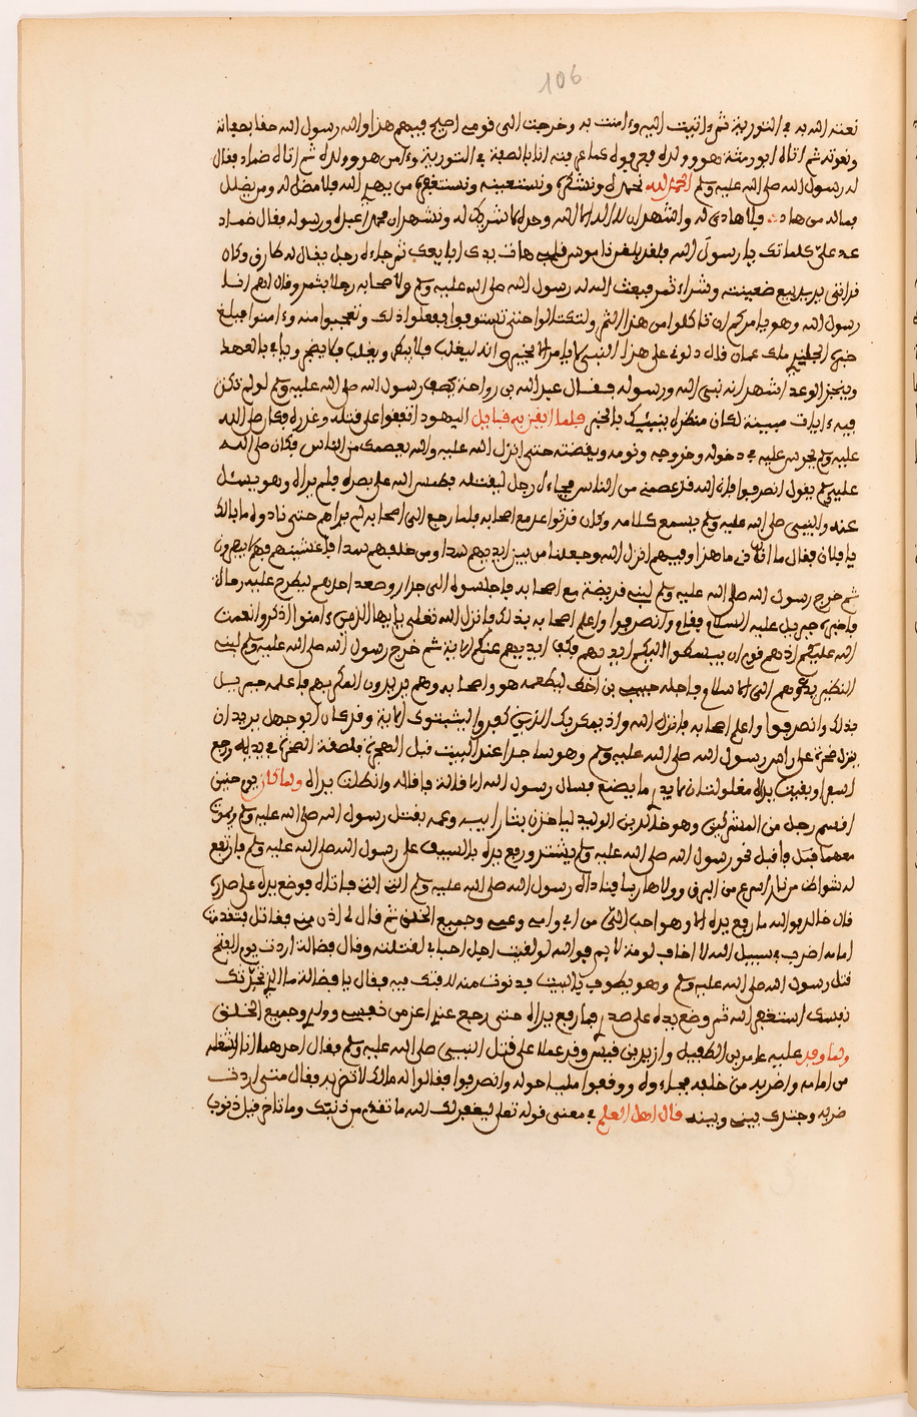 106
نعته الله به في التورية ثم اتيت اليه وءامنت به وخرجت الى قومى احتج فيهم هذا والله رسول الله حقا بصفاته
ونعوته ثم اتاه ابو رمثة هو وولده فعرفوله كما عرفنه انا بالصفة في التورية وءامن هو وولده ثم اتاه ضماد فقال
له رسول الله صلى الله عليه وسلم الحمد لله نحمده ونشكره ونستعينه ونستغفره من يهد الله فلا مضل له ومن يضلل
فما له من هاد فلا هادي له واشهد ان لا اله الا الله وحده لا شريك له ونشهد ان محمدا عبده ورسوله فقال ضماد
عد علي كلماتك يا رسول الله فلقد بلغن قاموس هات يدك ابايعك ثم جاءه رجل يقال له طارق وكان
قد اتى يريد بيع ضعينته وشراء ثمر فبعث الله له رسول الله صلى الله عليه وسلم ولاصحابه رجلا بثمر وقال لهم انا
رسول الله وهو يامركم ان تاكلوا من هذا الثمر ولتكتالوا حتى تستوفوا ففعلوا ذلك وتعجبوا منه وءامنوا فبلغ
خبره الجلندي ملك عمان قال دلوني على هذا النبي لا يامر الا بخير وانه ليغلب فلا يبطر ويغلب فلا يضجر ويفي بالعهد
وينجز الوعد اشهد انه نبي الله ورسوله فقال عبد الله بن رواحة يصف رسول الله صلى الله عليه وسلم لو لم تكن
فيه ءايات مبينة لكان منظره ينبئك بالخبر فلما اتفق اليهود اتفقوا على قتله وغدره فكان صلى الله
عليه وسلم يحرس عليه في دخوله وخروجه ونومه ويقضته حتى انزل الله عليه والله يعصمك من الناس فكان صلى الله
عليه وسلم يقول انصرفوا فان الله قد عصمني من الناس فجاءه رجل ليقتله فطمس الله على بصره فلم يراه وهو يسئل
عنه والنبي صلى الله عليه وسلم يسمع كلامه وكان قد تواعد مع اصحابه فلما رجع الى اصحابه لم يراهم حتى نادوه ما بالك
يا فلان فقال ما اتاني ما هذا وفيهم انزل الله وجعلنا من بين ايديهم سدا ومن خلفهم سدا فاغشينهم فهم لا يبصرون
ثم خرج رسول الله صلى الله عليه وسلم لبني قريضة مع اصحابه فاجلسوه الى جدار وصعد احدهم ليطرح عليه رحاه
فاخبره جبريل عليه السلام فقام وانصرفوا واعلم اصحابه بذلك فانزل الله تعلى يا ايها الذين ءامنوا اذكروا نعمت
الله عليكم اذ هم قوم ان يبسطوا اليكم ايديهم فكف ايديهم عنكم الاية ثم خرج رسول الله صلى الله عليه وسلم لبني
النظير يدعوهم الى الاسلام فاجله حييي بن اخطب ليطعمه هو واصحابه وهم يريدون المكر بهم فاعلمه جبريل
بذلك وانصرفوا واعلم اصحابه فانزل الله واذ يمكر بك الذين كفروا ليثبتوك الاية وقد كان ابو جهل يريد ان
ينزل صخرة على راس رسول الله صلى الله عليه وسلم وهو ساجدا عند البيت قبل الهجرة فلصقة الصخرة في يديه ورجع
اسفا وبقيت يداه مغلولتان لا يدر ما يصنع فسال رسول الله الاقالة فاقاله وانطلقت يداه ولما كان يوم حنين
اقسم رجل من المشركين وهو خالد بن الوليد لياخذن بثار ابيه وعمه بقتل رسول الله صلى الله عليه وسلم ويموت
معهما قبل فاقبل نحو رسول الله صلى الله عليه وسلم يشتد ورفع يده بالسيف على رسول الله صلى الله عليه وسلم فارتفع
له شواظ من نار اسرع من البرق وولا هاربا فناداه رسول الله صلى الله عليه وسلم ائت ائت فاتاه فوضع يده على صدره
قال خالد فوالله ما رفع يده الا وهو احب الي من ابي وامي وعمي وجميع الخلق ثم قال لي اذن مني فقاتل فتقدمت
امامه اضرب في سبيل الله لا اخاف لومة لايم فوالله لو لقيت اهل احبائي لقتلته وقال فضالة اردت يوم الفتح
قتل رسول الله صلى الله عليه وسلم وهو يطوف بالبيت فدنوت منه لافتك فيه فقال يا فضالة ما الذي تحدثك
نفسك استغفر الله ثم وضع يده على صدري فما رفع يداه حتى رجع عندي اعز من نفسي وولدي وجميع الخلق
ولما وفد عليه عامر بن الطفيل وازيد بن قيس وقد عملا على قتل النبي صلى الله عليه وسلم فقال احدهما انا اشغله
من امامه واضربه من خلفه فجاءوه ووقفوا مليا حوله وانصرفوا فقالوا له مالك لا تضربه فقال متى اردت
ضربه وجدتك بيني وبينه قال اهل العلم في معنى قوله تعلى ليغفر لك الله ما تقدم من ذنبك وما تاخر قبل ذنوب